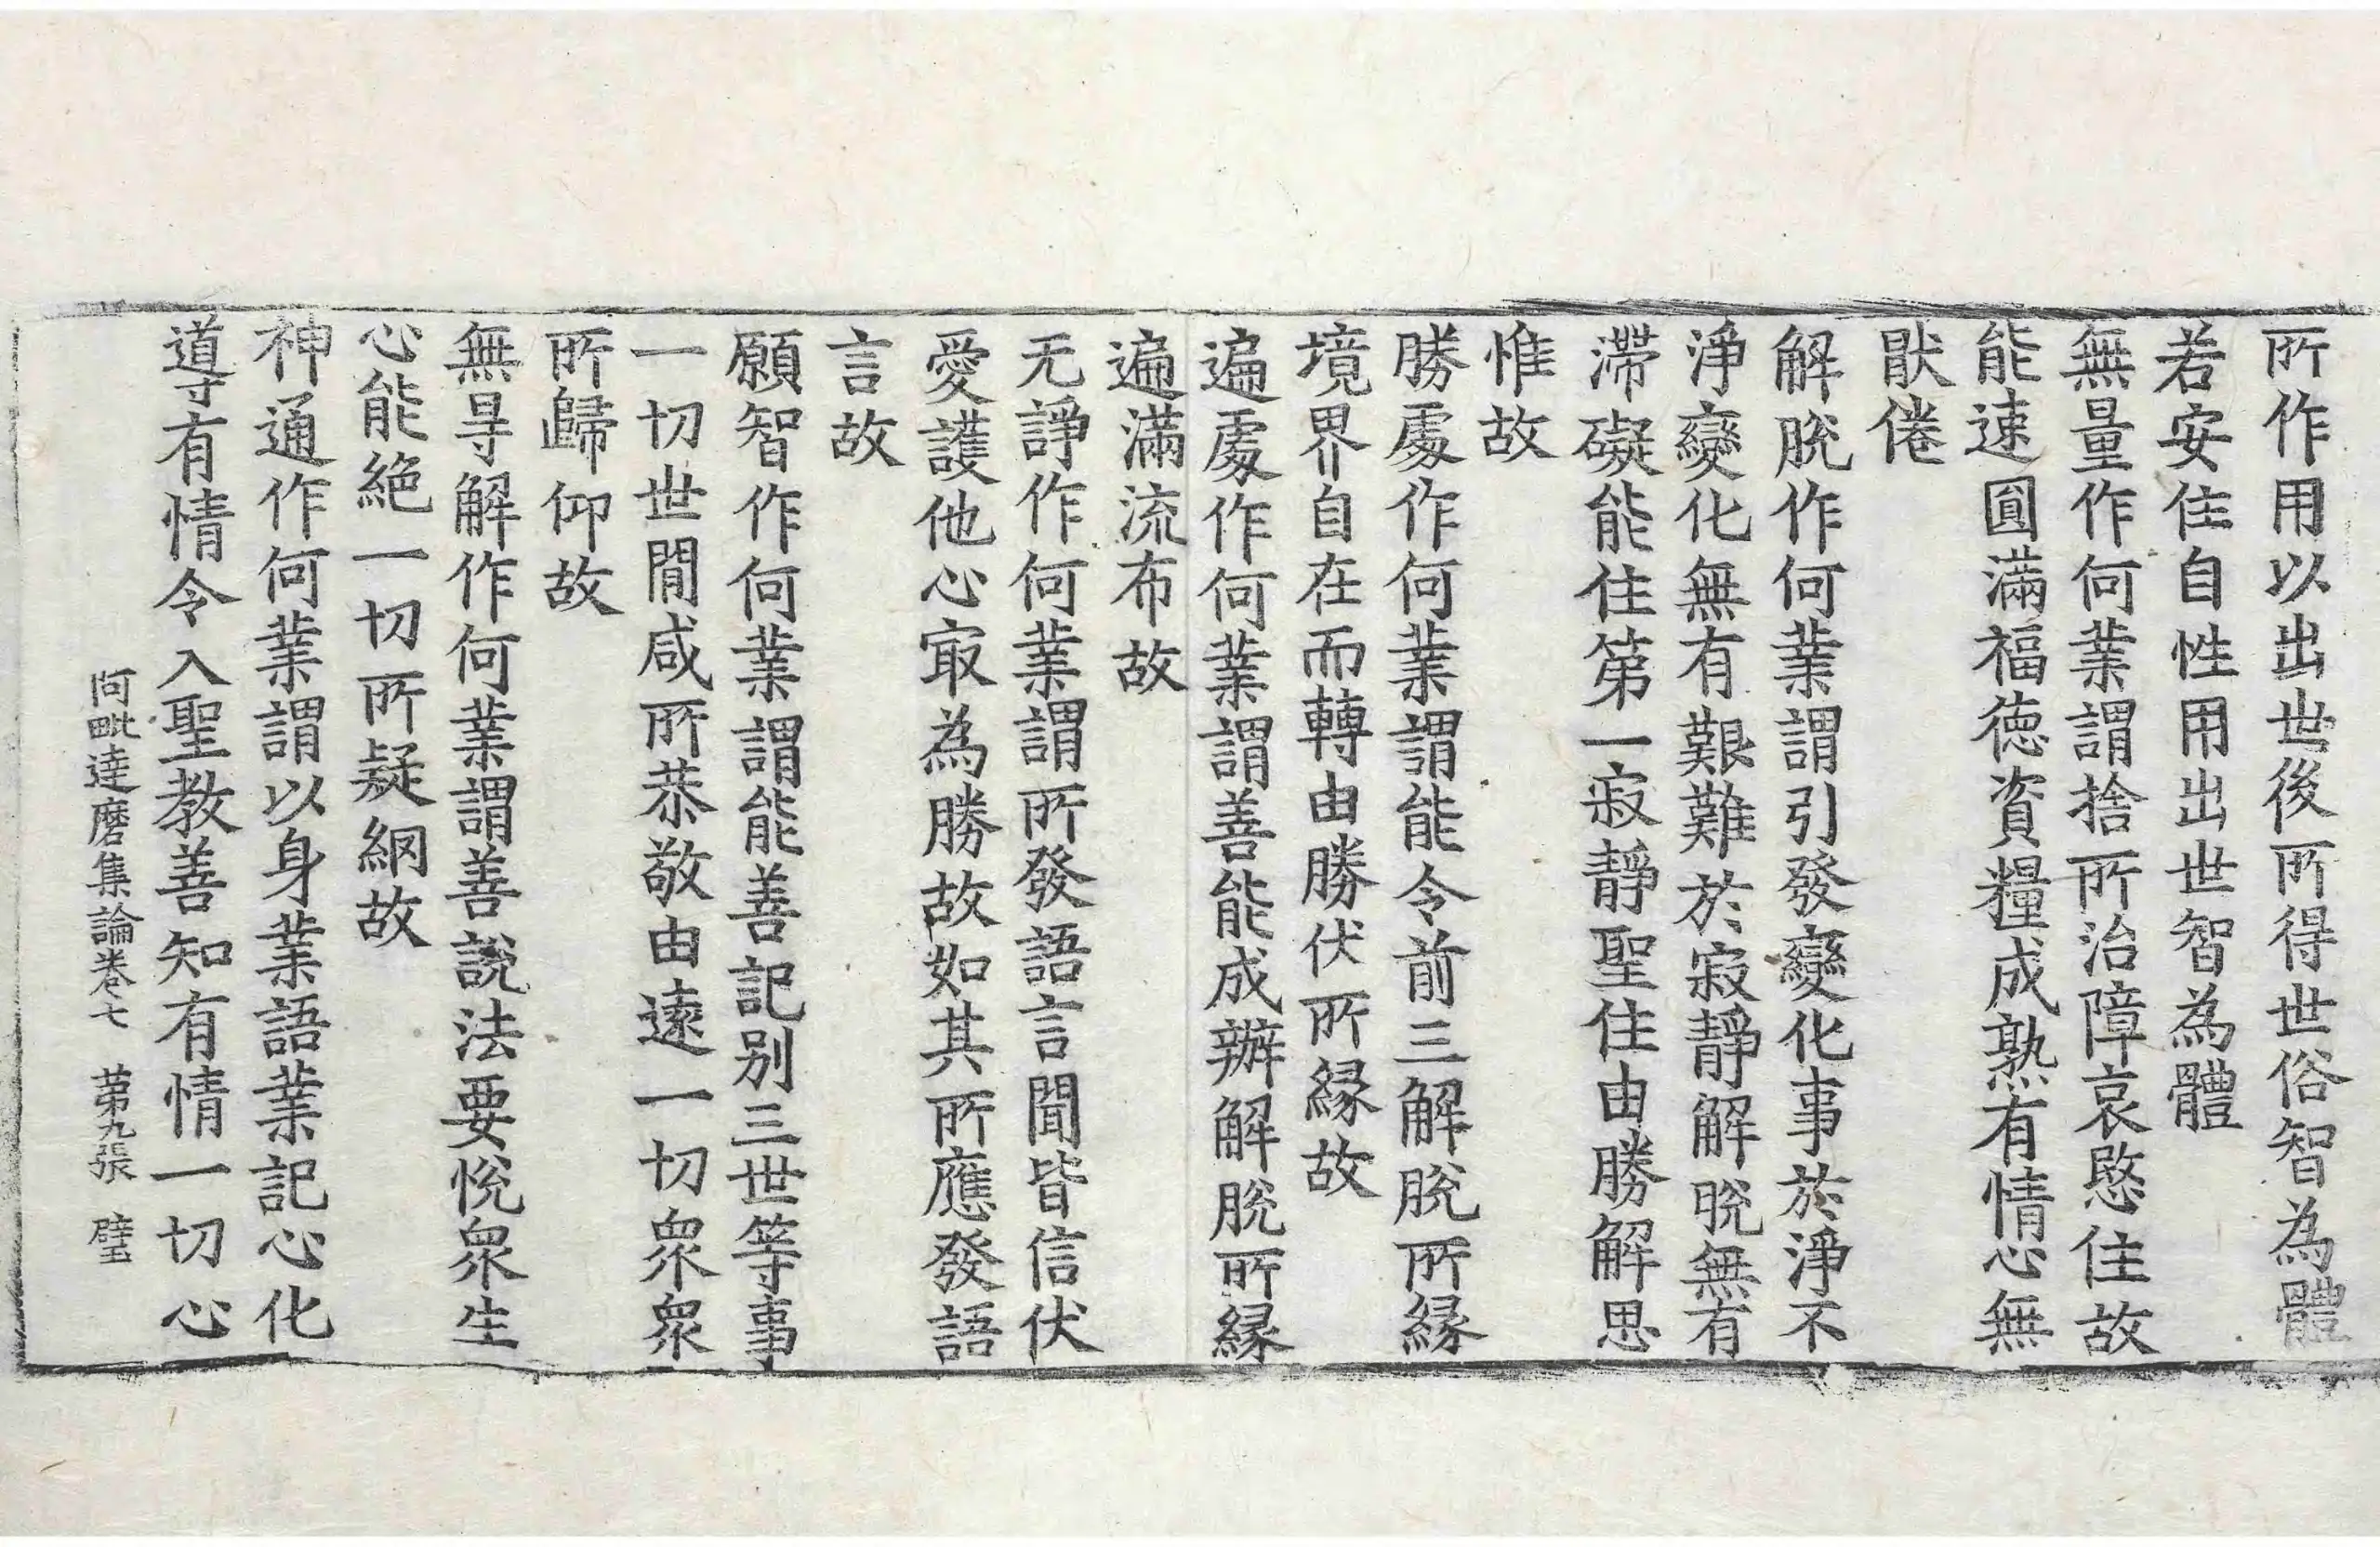 所作用以出世後所得世俗智為體
若安住自性用出世智為體
無量作何業謂捨所治障哀愍住故
能速圓滿福德資糧成熟有情心無
猒倦
解脫作何業謂引發變化事於淨不
淨變化無有艱難於寂靜解脫無有
滯礙能住第一寂靜聖住由勝解思
惟故
勝處作何業謂能令前三解脫所緣
境界自在而轉由勝伏所緣故
遍處作何業謂善能成辦解脫所緣
遍滿流布故
无諍作何業謂所發語言聞皆信伏
愛護他心㝡為勝故如其所應發語
言故
願智作何業謂能善記別三世等事
一切世間咸所恭敬由遠一切眾眾
所歸仰故
無㝵解作何業謂善說法要悅眾生
心能絕一切所疑網故
神通作何業謂以身業語業記心化
導有情令入聖教善知有情一切心
阿毗達磨集論卷七 第九張 璧